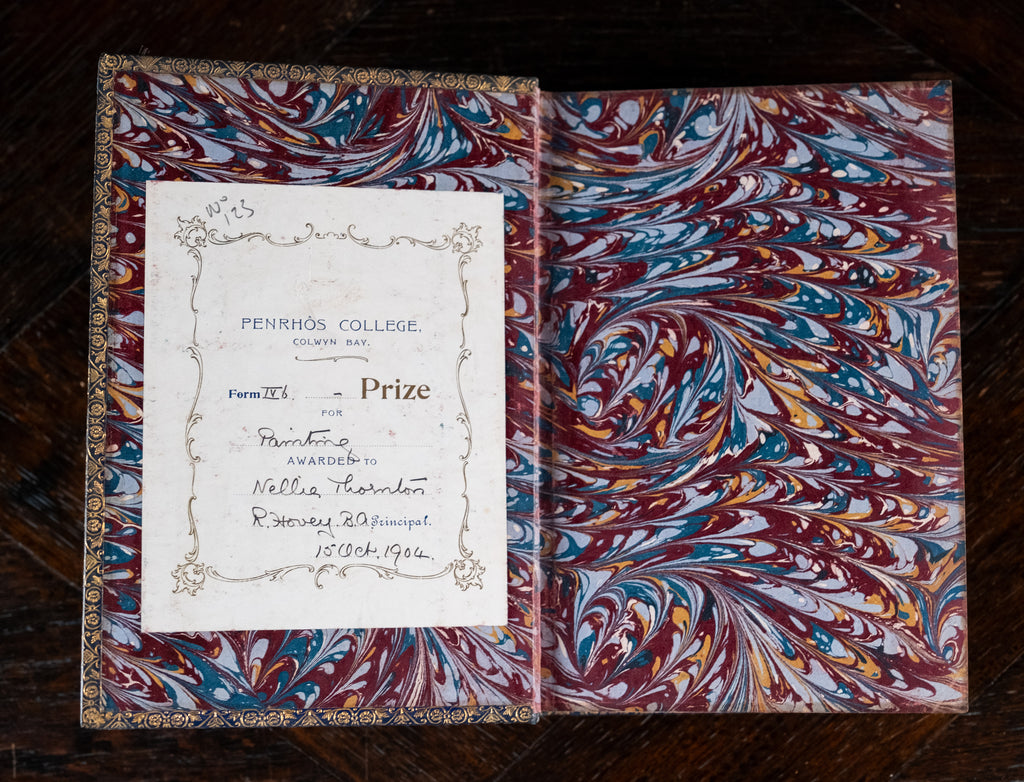 No 123
PENRHÔS COLLEGE,
COLWYN BAY.
Form IV b. - Prize
FOR
Painting
AWARDED TO
Nellie Thornton
R. Hovey. B.A Principal.
15 Oct. 1904.